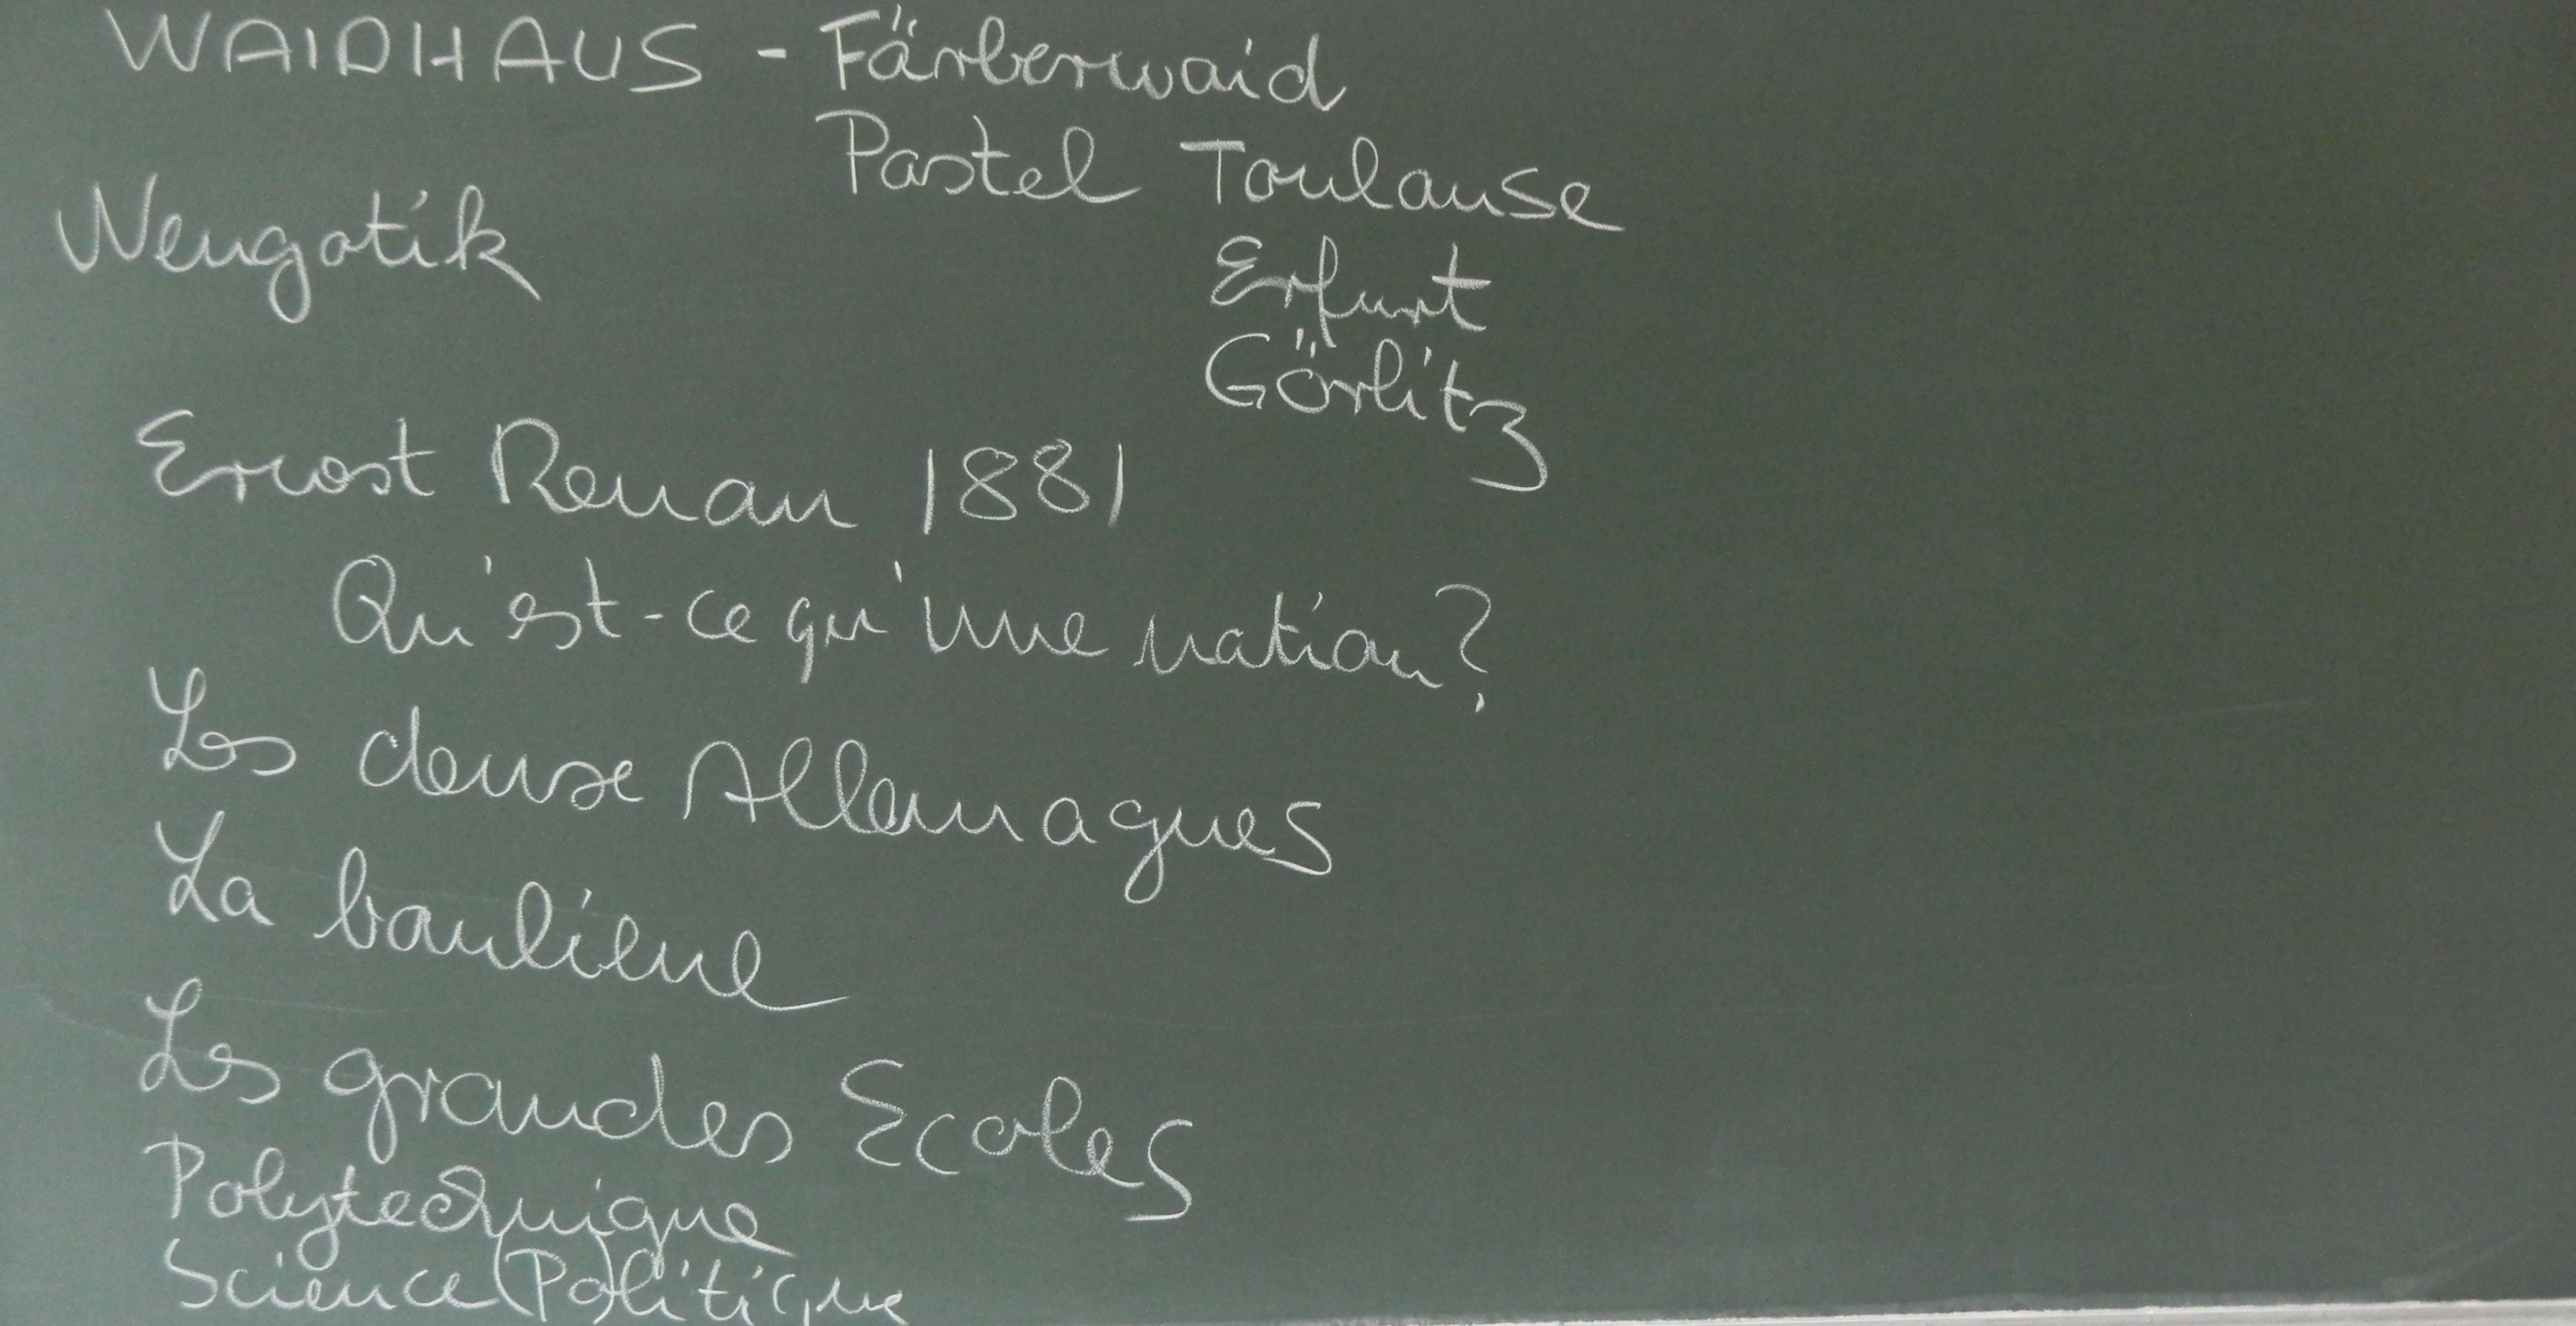 WAIDHAUS - Färberwaid
Pastel Toulouse
Neugotik
Erfurt
Görlitz
Ernest Renan 1881
Qu'est-ce qu'une nation?
Les deuse Allemagnes
La banlieue
Les grandes Ecoles
Polytechnique
Science (Po)litique